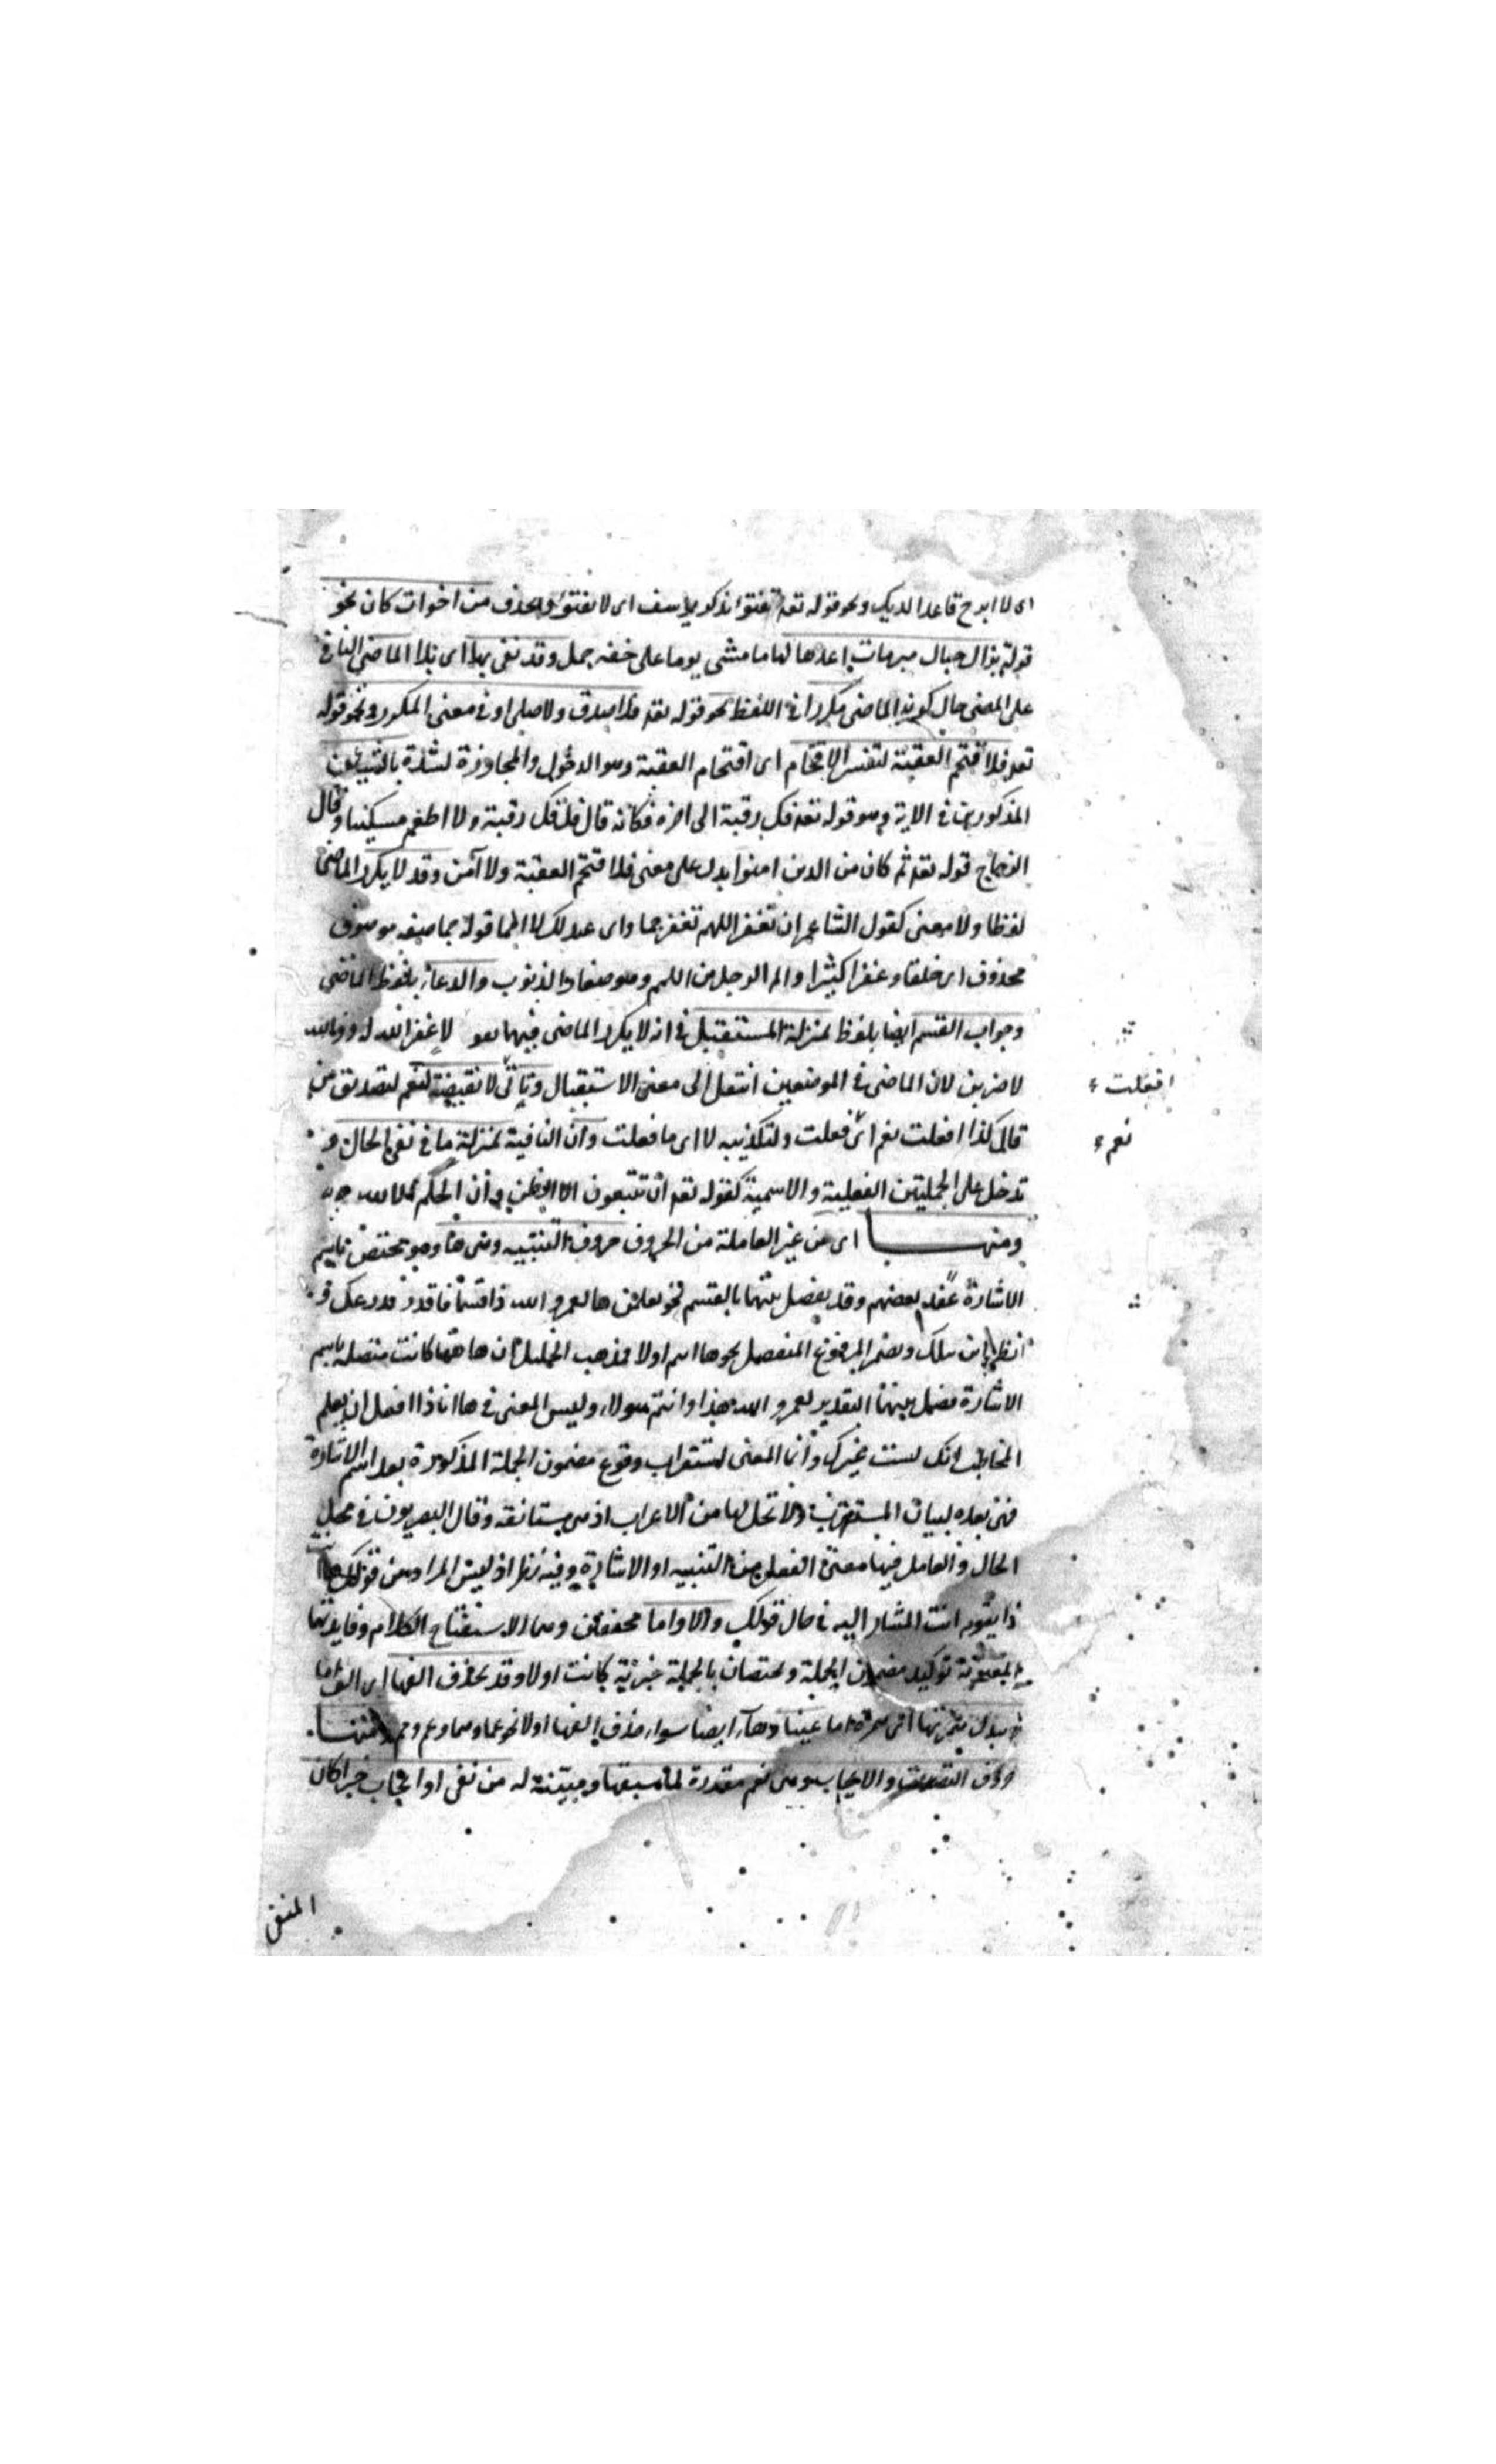 اى لا ابرح قاعدا لديك ونحو قوله تعه تفتؤا تذكر يوسف اى لا تفتؤ ويحذف من اخوات كان نحو
قوله يزال حبال مبرمات اعدها لها ما مشى يوما على خفه جمل وقد نفى بها اى بلا الماضى الباقى
على المضى حال كون الماضى مكررا فى اللفظ نحو قوله تعه فلا صدق ولا صلى او فى معنى المكرر ونحو قوله
تعه فلا اقتحم العقبة لتفسير الاقتحام اى اقتحام العقبة وهو الدخول والمجاوزة لشدة بالشيئين
المذكورين فى الاية وهو قوله تعه فك رقبة الى اخره فكانه قال فلا فك رقبة ولا اطعم مسكينا وقال
الزجاج قوله تعه ثم كان من الذين امنوا يدل على معنى فلا اقتحم العقبة ولا آمن وقد لا يكرر الماضى
لفظا ولا معنى كقول الشاعر ان تغفر اللهم تغفر جما واى عبد لك لا الما قوله جما صفة موصوف
محذوف اى خلقا وغفرا كثيرا والم الرجل من اللمم وهو صغار الذنوب والدعاء بلفظ الماضى
وجواب القسم ايضا بلفظ بمنزلة المستقبل فى انه لا يكرر الماضى فيهما نحو لا غفر الله له ووالله
لا ضربن لان الماضى فى الموضعين انتقل الى معنى الاستقبال وتاتى لا نقيضة لنعم لتصديق من
قال لك لذا افعلت نعم اى فعلت ولتكذيبه لا اى ما فعلت وان النافية بمنزلة ما فى نفى الحال و
تدخل على الجملتين الفعلية والاسمية كقوله تعه ان تتبعون الا الظن وان الحكم الا لله
ومنها اى من غير العاملة من الحروف حروف التنبيه وهى ها وهو تختص باسم
الاشارة عند بعضهم وقد يفصل بينهما بالقسم نحو تعلمن ها لعمرو الله ذا قسما فاقدر بذرعك و
انظر اين تنسلك وبضمير المرفوع المنفصل نحوها انتم اولاء فمذهب الخليل ان ها هنا كانت متصلة باسم
الاشارة فصل بينهما التقدير لعمرو الله هذا وانتم هولاء وليس المعنى فى ها انا ذا افعل ان يعلم
المخاطب انك لست غيرك وانما المعنى استغراب وقوع مضمون الجملة المذكورة بعد اسم الاشارة
فهى بعده لبيان المستغرب ولا محل لها من الاعراب اذ هى مستانفة وقال البصريون فى محل
الحال والعامل فيها معنى الفعل من التنبيه او الاشارة وفيه نظر اذ ليس المراد من قولك ها انت
ذا يقول انت المشار اليه فى حال قولك والا واما مخففتان وهما لاستفتاح الكلام وفايدتهما
المعنوية توكيد مضمون الجملة وتختصان بالجملة خبرية كانت اولا وقد يحذف الفها اى الف اما
وتبدل همزتها اى همزة اما عينا وهاء ايضا سواء حذف الفها اولا نحو عما وهما وعم وهم ومنها
حروف التصديق والايجاب وهى نعم مقررة لما سبقها ومبينة له من نفى او ايجاب خبرا كان
افعلت
نعم
المنفى